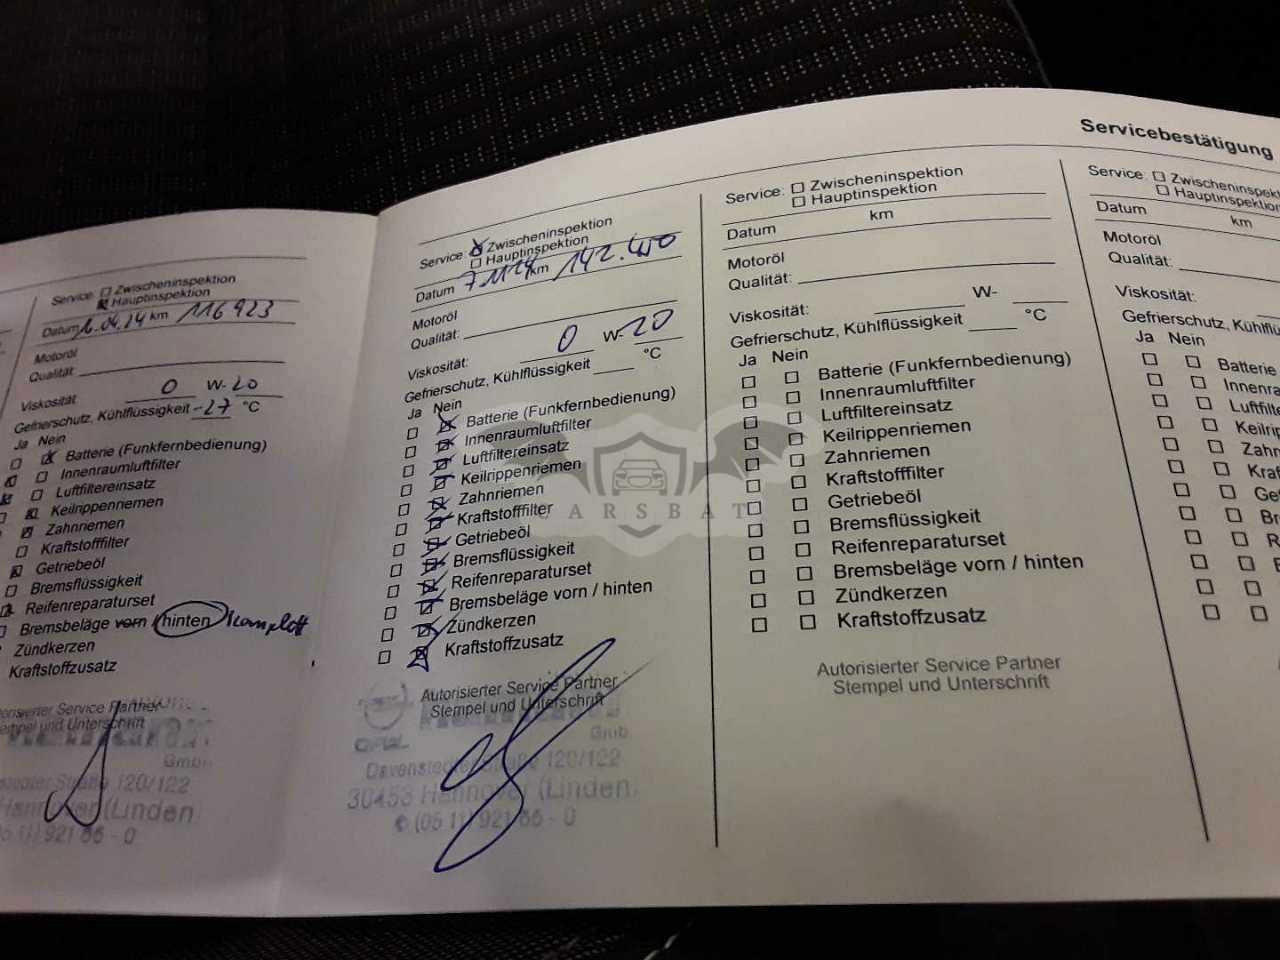 Servicebestätigung
Service: Zwischeninspektion
Hauptinspektion
Datum 6.04.24 km 116923
Motoröl
Qualität:
Viskosität: 0 W-20
Gefrierschutz, Kühlflüssigkeit -27 °C
Ja Nein
Batterie (Funkfernbedienung)
Innenraumluftfilter
Luftfiltereinsatz
Keilrippenriemen
Zahnriemen
Kraftstofffilter
Getriebeöl
Bremsflüssigkeit
Reifenreparaturset
Bremsbeläge vorn / hinten komplett
Zündkerzen
Kraftstoffzusatz
Service Partner
Stempel und Unterschrift
GmbH
Straße 120/122
Hannover (Linden
921 66 - 0
Service: Zwischeninspektion
Hauptinspektion
Datum km 142.400
Motoröl
Qualität:
Viskosität: 0 W-20
Gefrierschutz, Kühlflüssigkeit °C
Ja Nein
Batterie (Funkfernbedienung)
Innenraumluftfilter
Luftfiltereinsatz
Keilrippenriemen
Zahnriemen
Kraftstofffilter
Getriebeöl
Bremsflüssigkeit
Reifenreparaturset
Bremsbeläge vorn / hinten
Zündkerzen
Kraftstoffzusatz
Autorisierter Service Partner
Stempel und Unterschrift
OPEL
GmbH
Davenstedter Straße 120/122
30453 Hannover (Linden)
(05 11) 921 66 - 0
Service: Zwischeninspektion
Hauptinspektion
Datum km
Motoröl
Qualität:
Viskosität: W-
Gefrierschutz, Kühlflüssigkeit °C
Ja Nein
Batterie (Funkfernbedienung)
Innenraumluftfilter
Luftfiltereinsatz
Keilrippenriemen
Zahnriemen
Kraftstofffilter
Getriebeöl
Bremsflüssigkeit
Reifenreparaturset
Bremsbeläge vorn / hinten
Zündkerzen
Kraftstoffzusatz
Autorisierter Service Partner
Stempel und Unterschrift
Service: Zwischeninspekt
Hauptinspektion
Datum km
Motoröl
Qualität:
Viskosität:
Gefrierschutz, Kühlflüs
Ja Nein
Batterie
Innenra
Luftfilt
Keilrip
Zahn
Kraf
Ge
B
R
CARSBAT